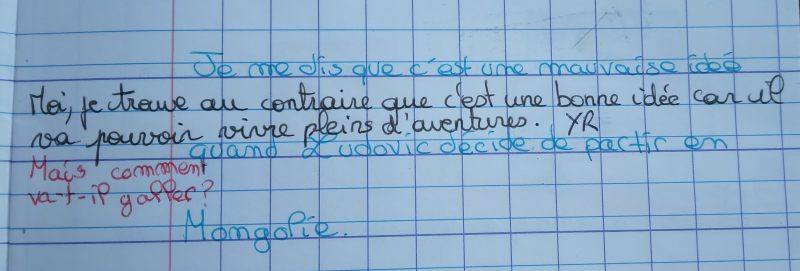 Je me dis que c'est une mauvaise idée
Moi, je trouve au contraire que c'est une bonne idée car il
va pouvoir vivre pleins d'aventures. YR
quand Ludovic décide de partir en
Mais comment
va-t-il gaffer?
Mongolie.